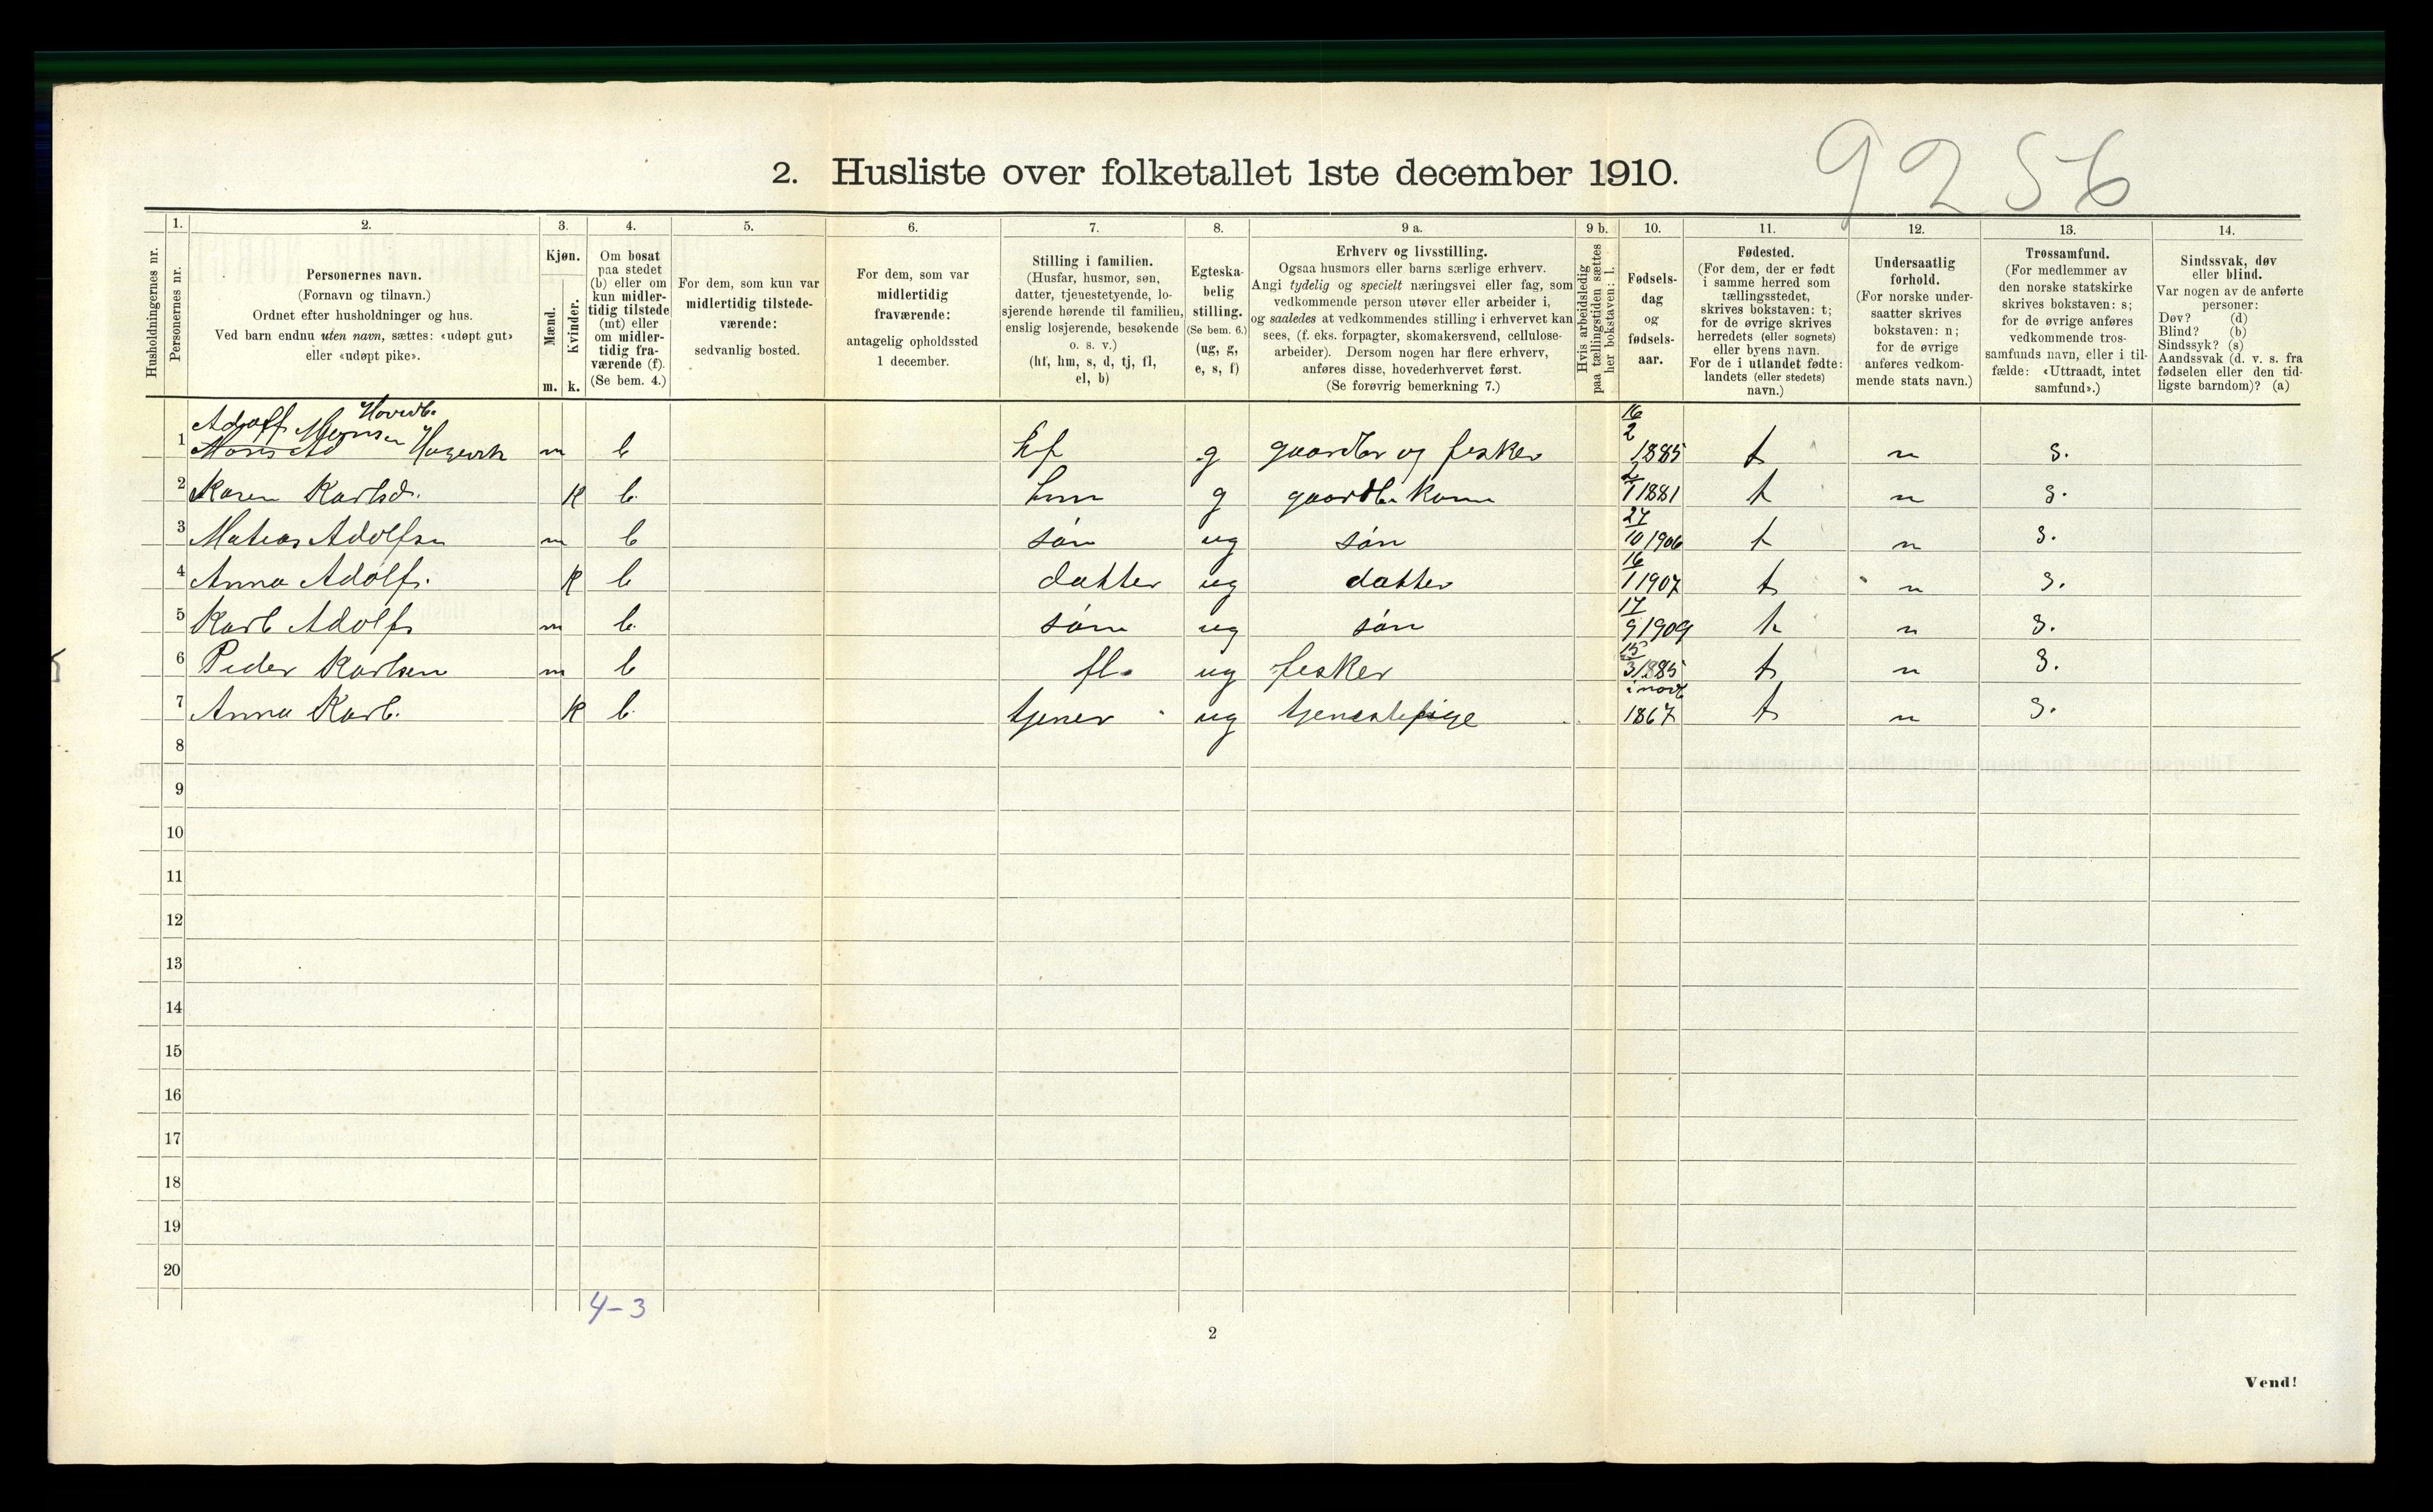 9256
2. Husliste over folketallet 1ste december 1910.
Husholdningernes nr.
1. Personernes nr.
2. Personernes navn.
(Fornavn og tilnavn.)
Ordnet efter husholdninger og hus.
Ved barn endnu uten navn, sættes: «udøpt gut»
eller «udøpt pike».
3. Kjøn.
Mænd. m.
Kvinder. k.
4. Om bosat
paa stedet
(b) eller om
kun midler-
tidig tilstede
(mt) eller
om midler-
tidig fra-
værende (f).
(Se bem. 4.)
5. For dem, som kun var
midlertidig tilstede-
værende:
sedvanlig bosted.
6. For dem, som var
midlertidig
fraværende:
antagelig opholdssted
1 december.
7. Stilling i familien.
(Husfar, husmor, søn,
datter, tjenestetyende, lo-
sjerende hørende til familien,
enslig losjerende, besøkende
o. s. v.)
(hf, hm, s, d, tj, fl,
el, b)
8. Egteska-
belig
stilling.
(Se bem. 6.)
(ug, g,
e, s, f)
9 a. Erhverv og livsstilling.
Ogsaa husmors eller barns særlige erhverv.
Angi tydelig og specielt næringsvei eller fag, som
vedkommende person utøver eller arbeider i,
og saaledes at vedkommendes stilling i erhvervet kan
sees, (f. eks. forpagter, skomakersvend, cellulose-
arbeider). Dersom nogen har flere erhverv,
anføres disse, hovederhvervet først.
(Se forøvrig bemerkning 7.)
9 b. Hvis arbeidsledig
paa tællingstiden sættes
her bokstaven: l.
10. Fødsels-
dag
og
fødsels-
aar.
11. Fødested.
(For dem, der er født
i samme herred som
tællingsstedet,
skrives bokstaven: t;
for de øvrige skrives
herredets (eller sognets)
eller byens navn.
For de i utlandet fødte:
landets (eller stedets)
navn.)
12. Undersaatlig
forhold.
(For norske under-
saatter skrives
bokstaven: n;
for de øvrige
anføres vedkom-
mende stats navn.)
13. Trossamfund.
(For medlemmer av
den norske statskirke
skrives bokstaven: s;
for de øvrige anføres
vedkommende tros-
samfunds navn, eller i til-
fælde: «Uttraadt, intet
samfund».)
14. Sindssvak, døv
eller blind.
Var nogen av de anførte
personer:
Døv? (d)
Blind? (b)
Sindssyk? (s)
Aandssvak (d. v. s. fra
fødselen eller den tid-
ligste barndom)? (a)
1 Adolf Monsen m b hf g gaardbr og fesker 16/2 1885 t n s.
2 Karen Karlsd. K b hm g gaardb. Kone 2/1 1881 t n s.
3 Matias Adolfsn m b søn ug søn 27/10 1906 t n s.
4 Anna Adolfs. K b datter ug datter 16/1 1907 t n s.
5 Karl Adolfs m b søn ug søn 17/9 1909 t n s.
6 Peder Karlsen m b fl. ug fesker 15/3 1885 t n s.
7 Anna Karl. K b tjener ug tjenestepige 1867 t n s.
8
9
10
11
12
13
14
15
16
17
18
19
20
4-3
2
Vend!